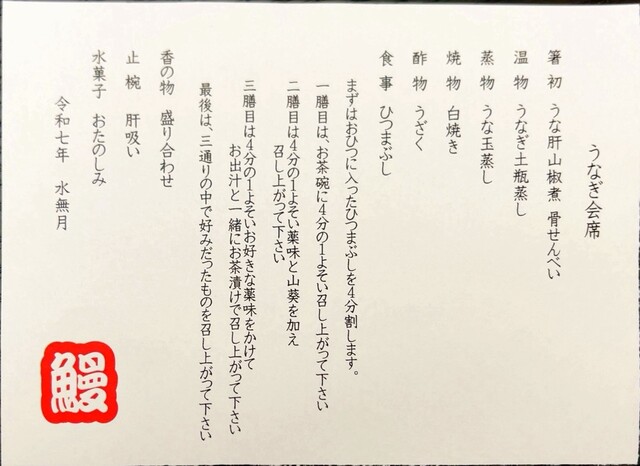 うなぎ会席
箸初 うな肝山椒煮 骨せんべい
温物 うなぎ土瓶蒸し
蒸物 うな玉蒸し
焼物 白焼き
酢物 うざく
食事 ひつまぶし
まずはおひつに入ったひつまぶしを4分割します。
一膳目は、お茶碗に4分の1よそい召し上がって下さい
二膳目は4分の1よそい薬味と山葵を加え
召し上がって下さい
三膳目は4分の1よそいお好きな薬味をかけて
お出汁と一緒にお茶漬けで召し上がって下さい
最後は、三通りの中で好みだったものを召し上がって下さい
香の物 盛り合わせ
止椀 肝吸い
水菓子 おたのしみ
令和七年 水無月
鰻